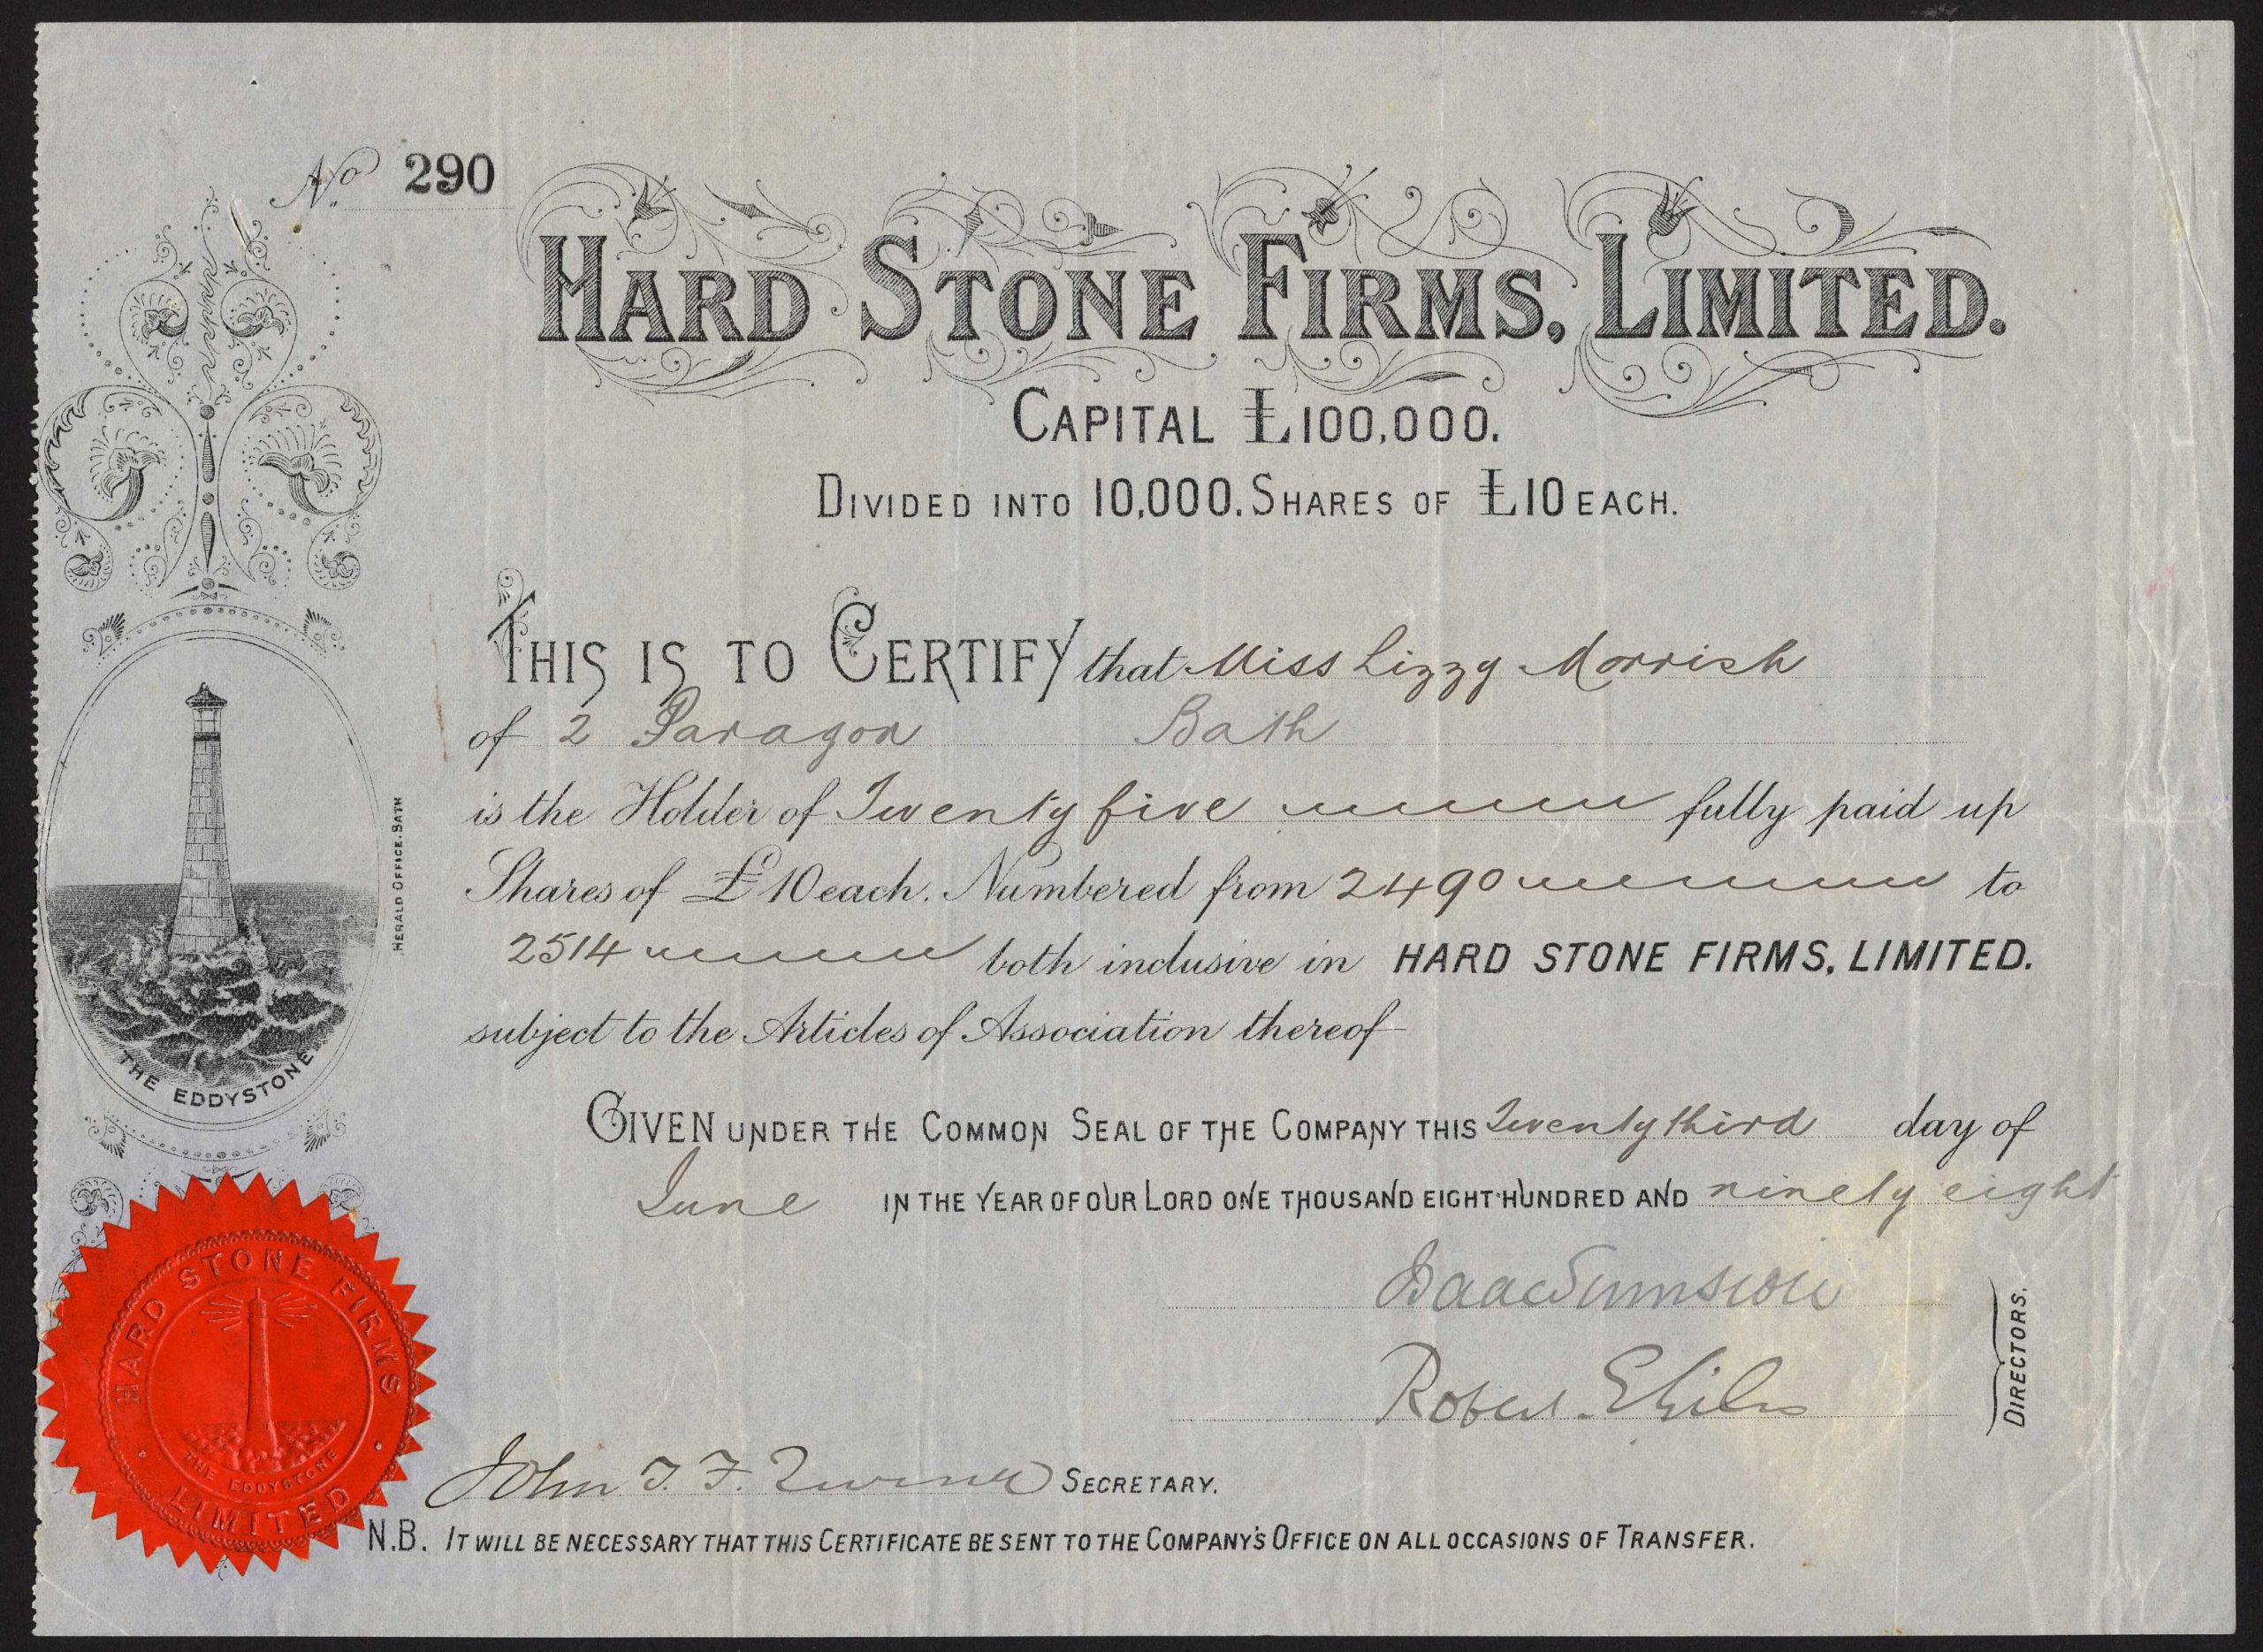 No. 290
HARD STONE FIRMS, LIMITED.
CAPITAL £100,000.
DIVIDED INTO 10,000. SHARES OF £10 EACH.
THIS IS TO CERTIFY that Miss Lizzy Morrish
of 2 Paragon Bath
is the Holder of Twenty five fully paid up
Shares of £10 each. Numbered from 2490 to
2514 both inclusive in HARD STONE FIRMS, LIMITED.
subject to the Articles of Association thereof
GIVEN UNDER THE COMMON SEAL OF THE COMPANY THIS Twenty third day of
June IN THE YEAR OF OUR LORD ONE THOUSAND EIGHT HUNDRED AND ninety eight
Isaac Sumsion
Robert
DIRECTORS.
John T. F. Turner SECRETARY.
N.B. IT WILL BE NECESSARY THAT THIS CERTIFICATE BE SENT TO THE COMPANY'S OFFICE ON ALL OCCASIONS OF TRANSFER.
THE EDDYSTONE
HERALD OFFICE. BATH
HARD STONE FIRMS
LIMITED
THE EDDYSTONE